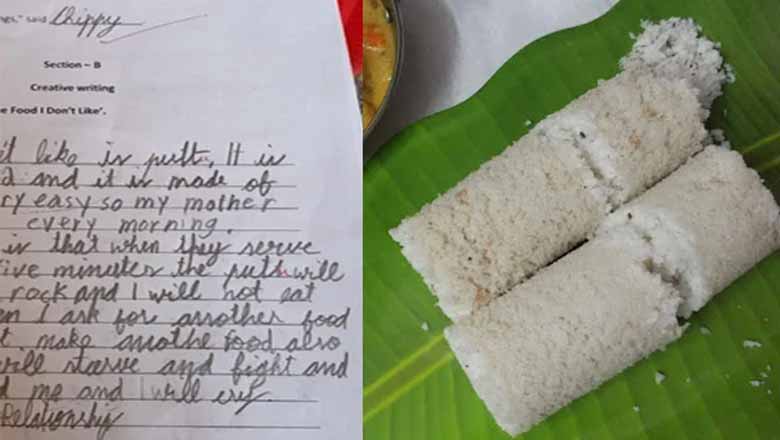 ngs," said Chippy
Section – B
Creative writing
e Food I Don't Like'.
t like is putt. It is
and it is made of
ry easy so my mother
every morning.
is that when they serve
ive minutes the putt will
rock and I will not eat
en I ask for another food
t make anothe food also
will starve and fight and
d me and I will cry.
Relationship